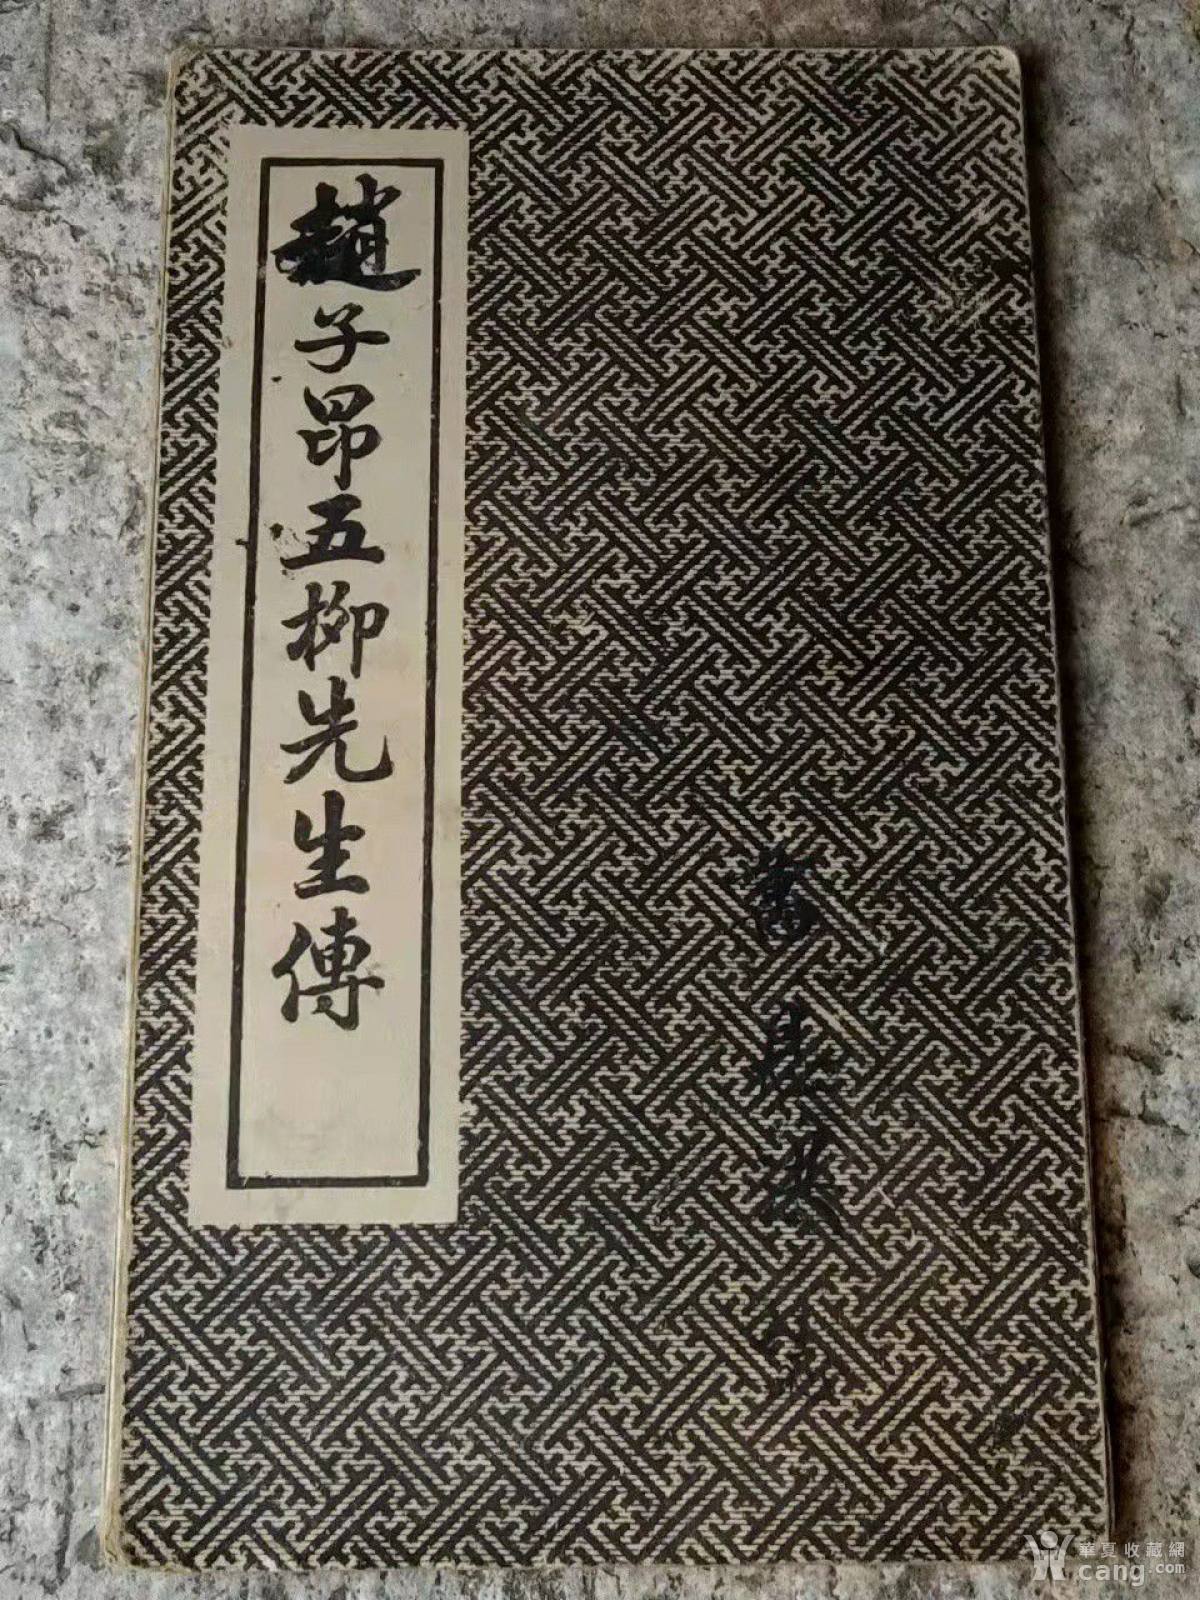 趙子昂五柳先生傳
華夏收藏網
cang.com